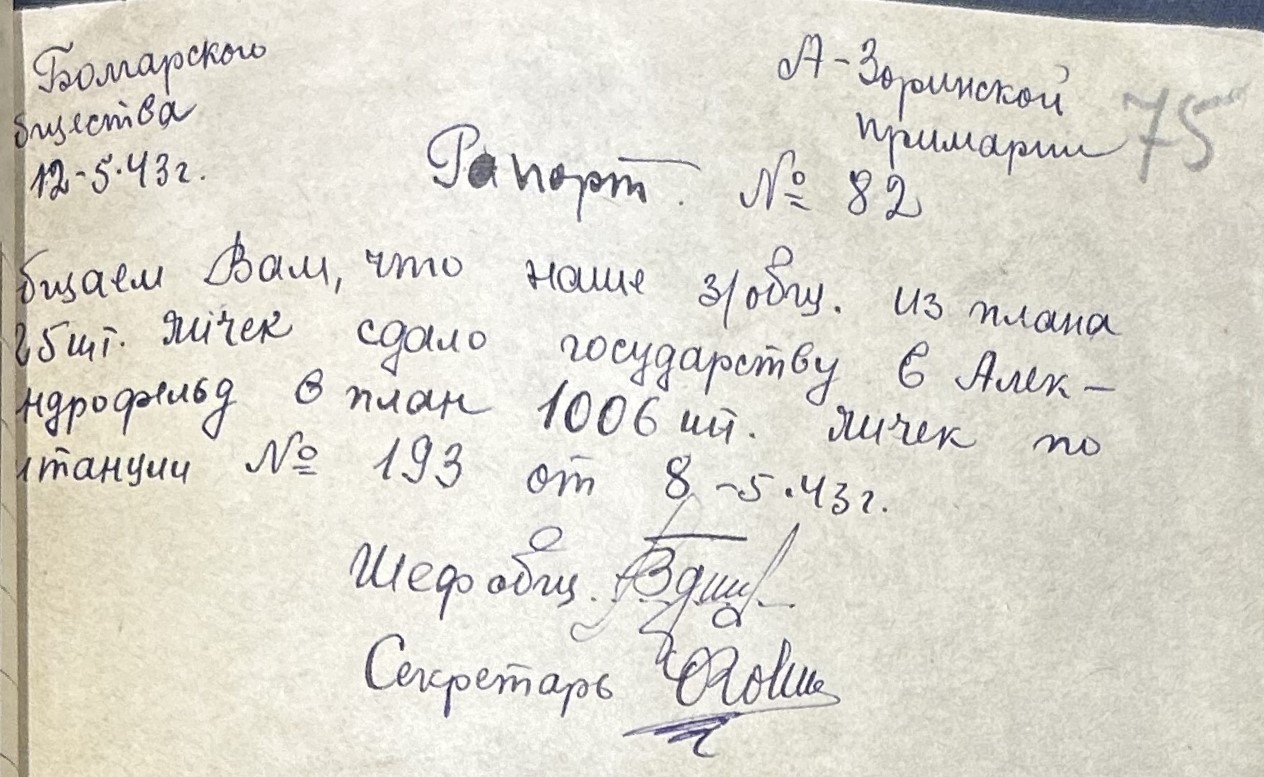 Болгарского
бщества
12-5.43г.
А-Зоринской
примарии
75
Рапорт. № 82
бщаем Вам, что наше з/общ. из плана
25шт. яічек сдало государству в Алек-
ндрофельд в план 1006 шт. яичек по
итанции № 193 от 8-5.43г.
Шеф общ.
Секретарь